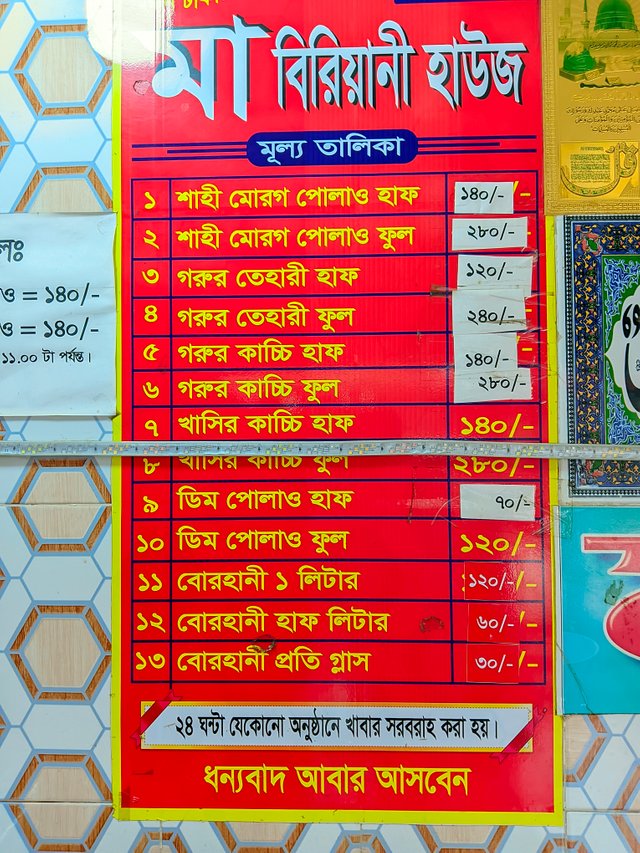 মা বিরিয়ানী হাউজ
মূল্য তালিকা
১ শাহী মোরগ পোলাও হাফ ১৪০/-
২ শাহী মোরগ পোলাও ফুল ২৮০/-
৩ গরুর তেহারী হাফ ১২০/-
৪ গরুর তেহারী ফুল ২৪০/-
৫ গরুর কাচ্চি হাফ ১৪০/-
৬ গরুর কাচ্চি ফুল ২৮০/-
৭ খাসির কাচ্চি হাফ ১৪০/-
৮ খাসির কাচ্চি ফুল ২৮০/-
৯ ডিম পোলাও হাফ ৭০/-
১০ ডিম পোলাও ফুল ১২০/-
১১ বোরহানী ১ লিটার ১২০/-
১২ বোরহানী হাফ লিটার ৬০/-
১৩ বোরহানী প্রতি গ্লাস ৩০/-
২৪ ঘন্টা যেকোনো অনুষ্ঠানে খাবার সরবরাহ করা হয়।
ধন্যবাদ আবার আসবেন
= ১৪০/-
= ১৪০/-
১১.০০ টা পর্যন্ত।